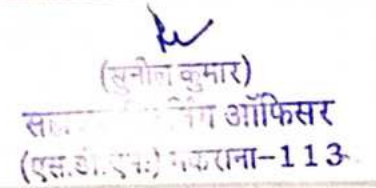 (सुनील कुमार)
ऑफिसर
(एस.डी.एम.) मकराना-113